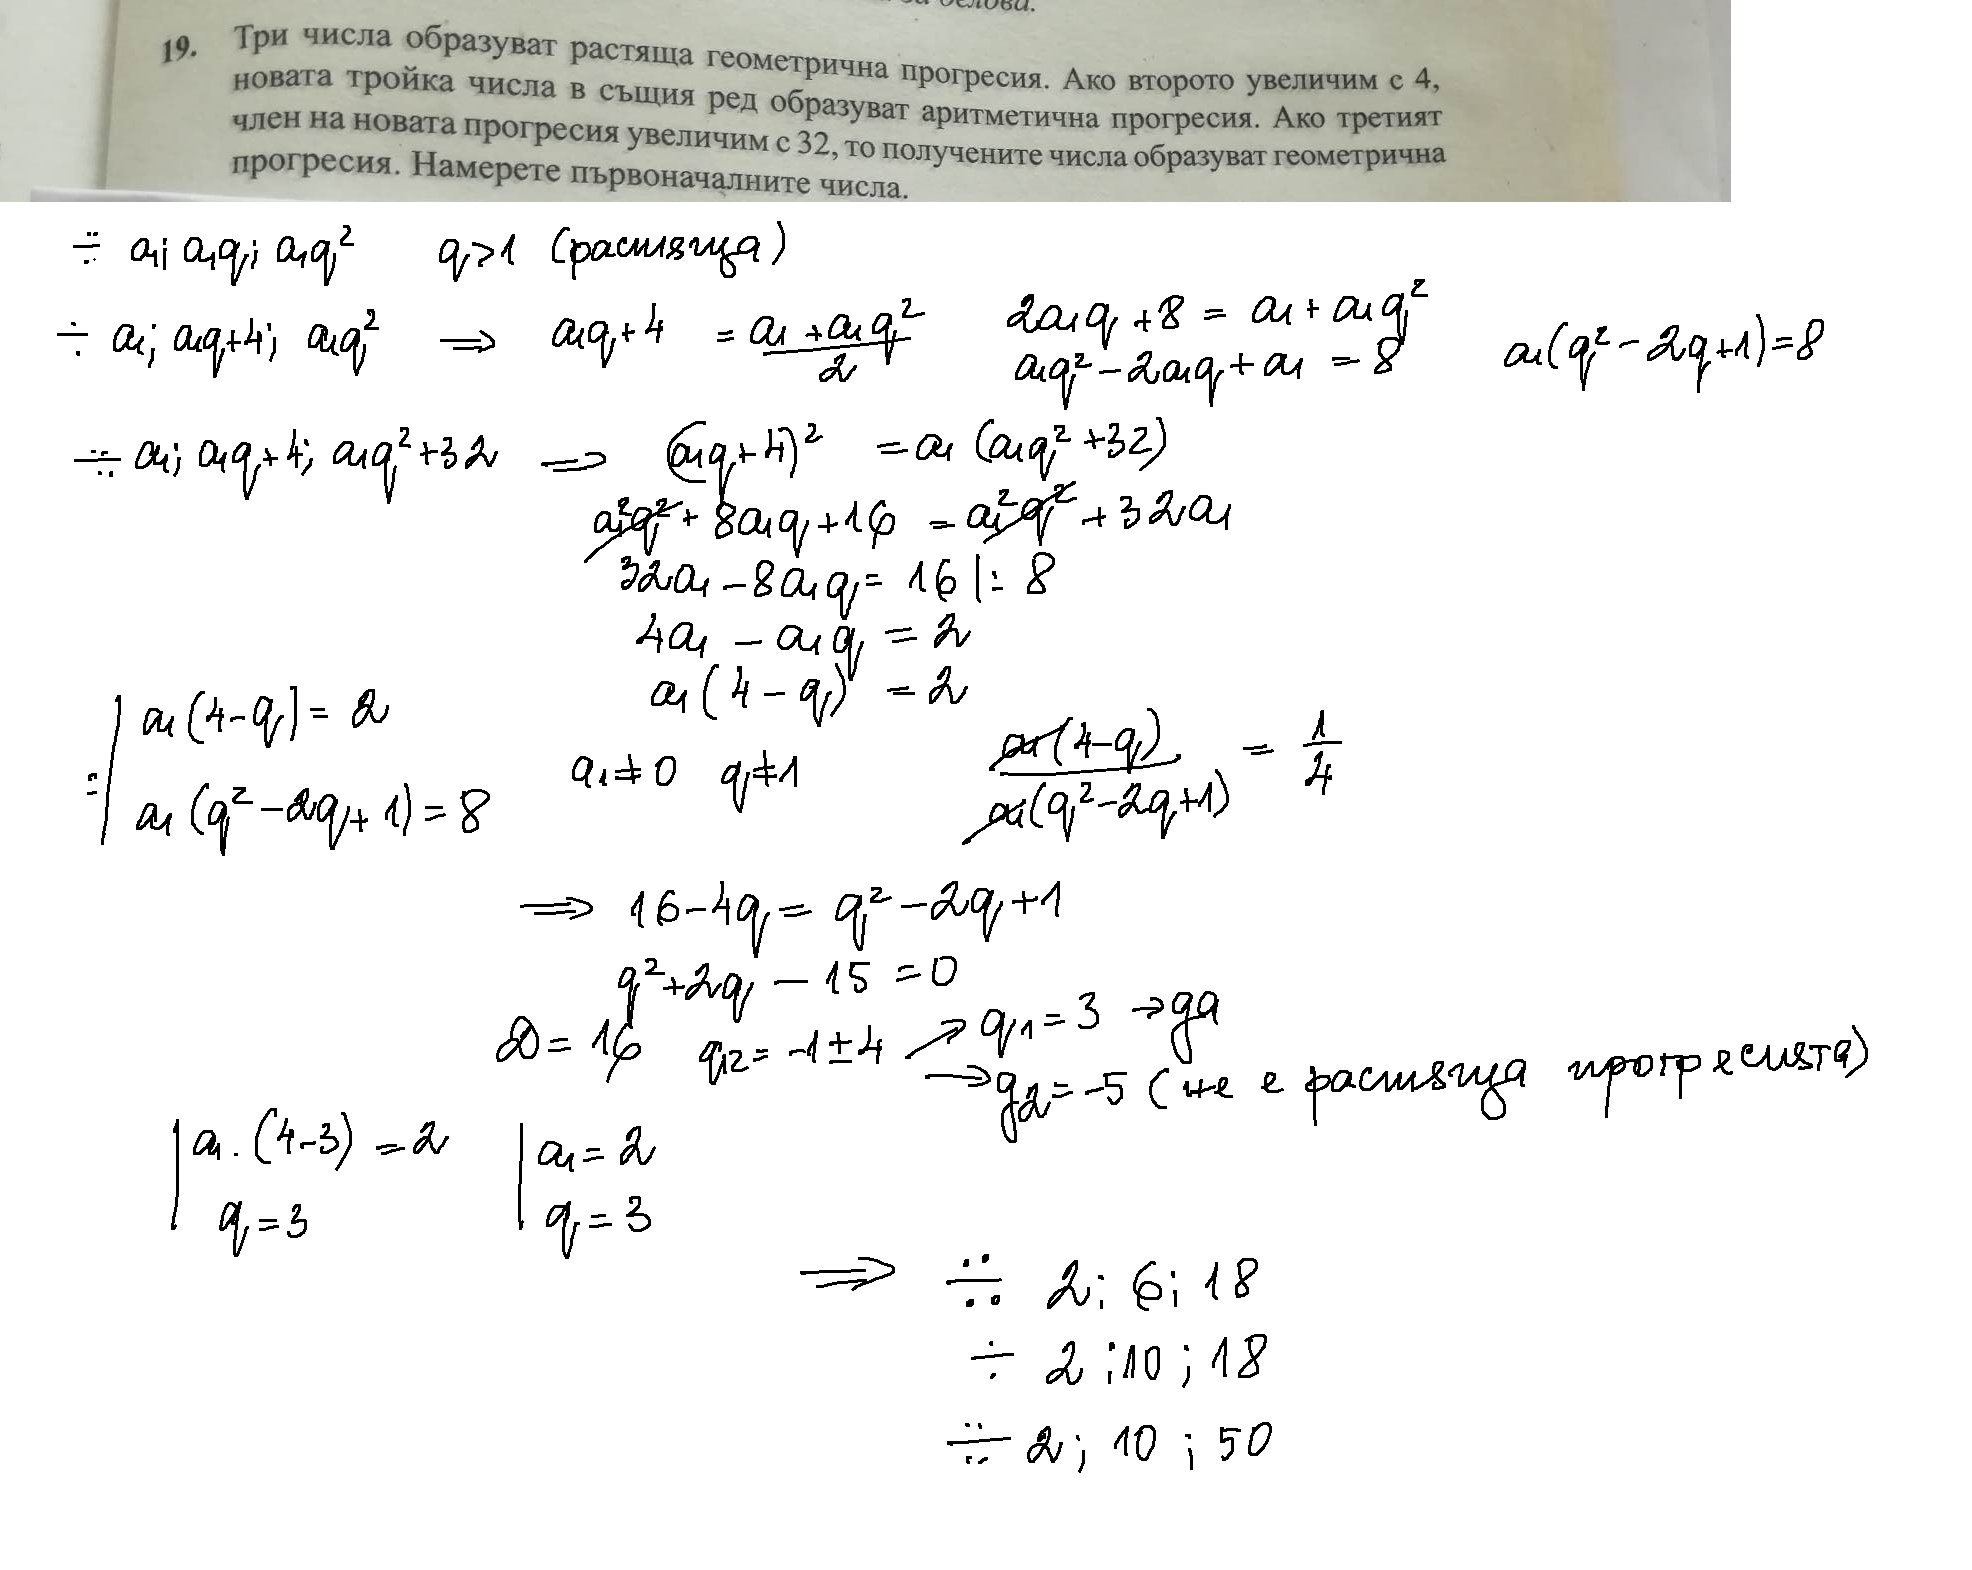 за белова.
19. Три числа образуват растяща геометрична прогресия. Ако второто увеличим с 4,
новата тройка числа в същия ред образуват аритметична прогресия. Ако третият
член на новата прогресия увеличим с 32, то получените числа образуват геометрична
прогресия. Намерете първоначалните числа.
÷ a₁; a₁q; a₁q² q>1 (растяща)
÷ a₁; a₁q+4; a₁q² ⇒ a₁q+4 = (a₁+a₁q²)/2 2a₁q+8 = a₁+a₁q²
a₁q²-2a₁q+a₁ = 8 a₁(q²-2q+1)=8
÷ a₁; a₁q+4; a₁q²+32 ⇒ (a₁q+4)² = a₁(a₁q²+32)
a₁²q²+8a₁q+16 = a₁²q²+32a₁
32a₁-8a₁q=16 |:8
4a₁-a₁q=2
a₁(4-q)=2
a₁(4-q)=2
a₁(q²-2q+1)=8 a₁≠0 q≠1 a₁(4-q)/a₁(q²-2q+1) = 1/4
⇒ 16-4q=q²-2q+1
q²+2q-15=0
D=16 q₁₂=-1±4 → q₁=3 → да
→ q₂=-5 (не е растяща прогресията)
a₁.(4-3)=2 a₁=2
q=3 q=3
⇒ ÷ 2; 6; 18
÷ 2; 10; 18
÷ 2; 10; 50